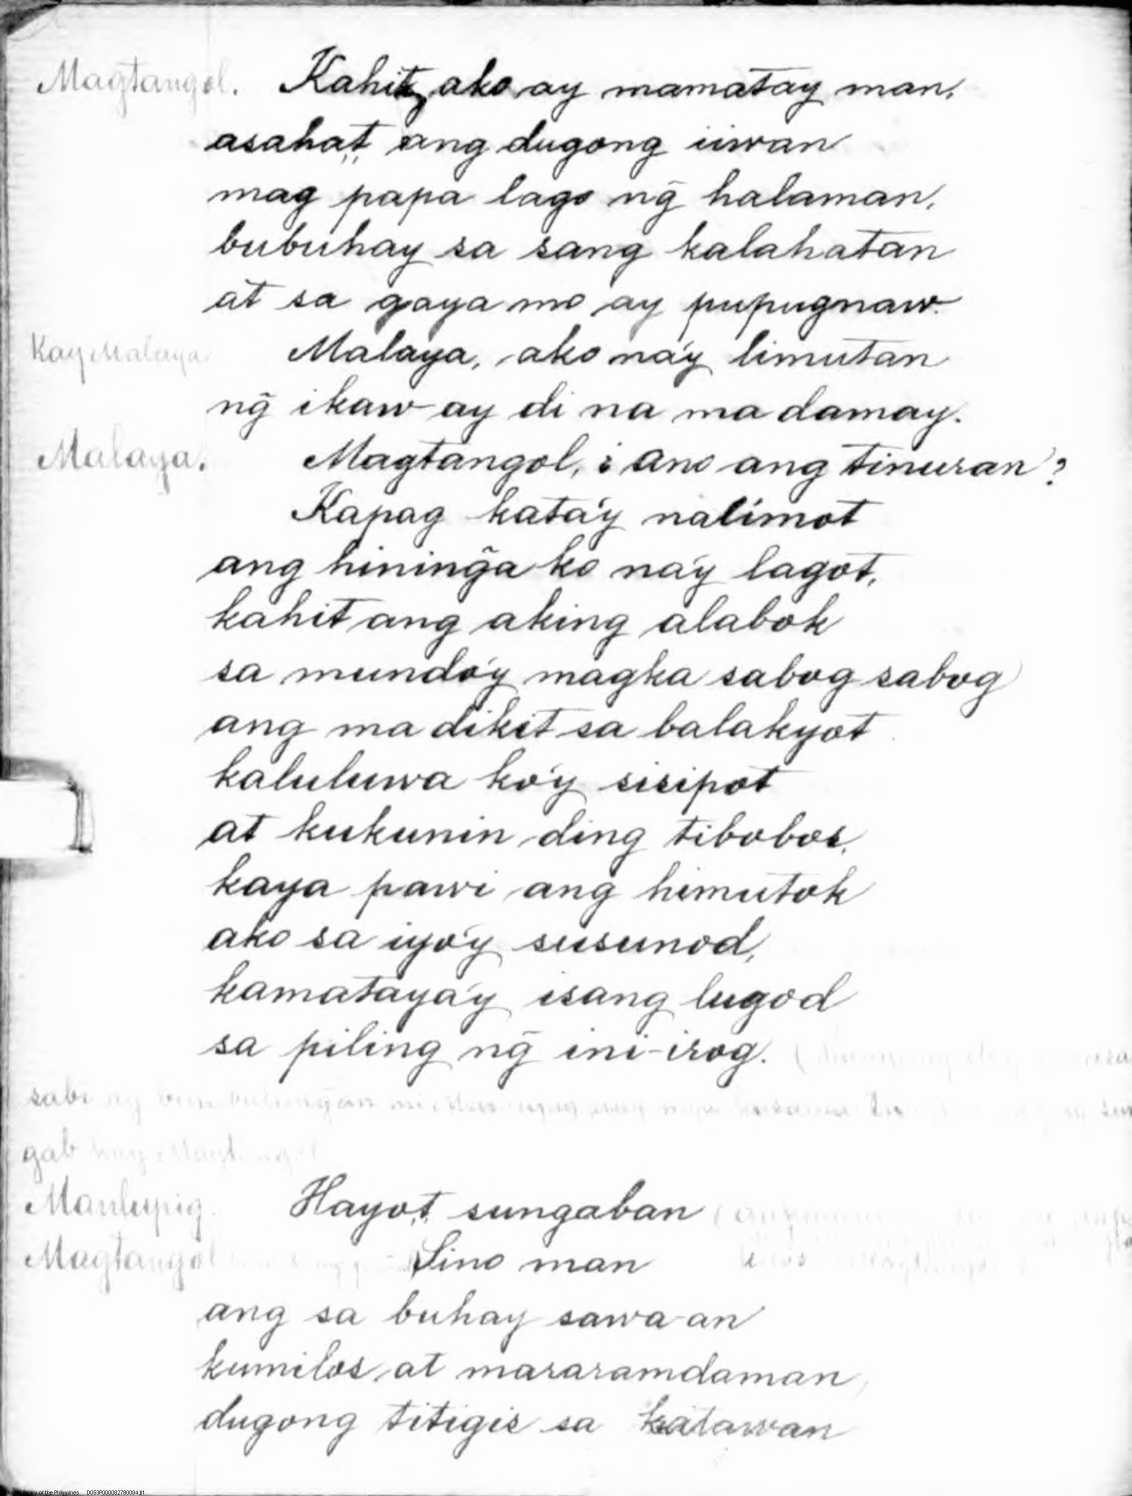 Magtangol. Kahit ako ay mamatay man,
asahat ang dugong iiwan
mag papa lago ng̃ halaman,
bubuhay sa sang kalahatan
at sa gaya mo ay pupugnaw.
Kay Malaya Malaya, ako na'y limutan
ng̃ ikaw ay di na ma damay.
Malaya. Magtangol, ¿ ano ang tinuran ?
Kapag kata'y nalimot
ang hining̃a ko na'y lagot,
kahit ang aking alabok
sa mundo'y magka sabog sabog
ang ma dikit sa balakyot
kaluluwa ko'y sisipot
at kukunin ding tibobos,
kaya pawi ang himutok
ako sa iyo'y susunod,
kamataya'y isang lugod
sa piling ng̃ ini-irog.
sabi ay
gab kay Magtangol
Manlupig. Hayo,t sungaban
Magtangol Sino man
ang sa buhay sawa-an
kumilos at mararamdaman
dugong titigis sa katawan